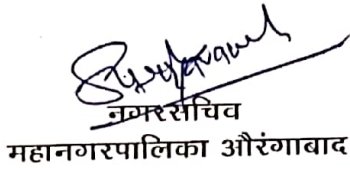 नगरसचिव
महानगरपालिका औरंगाबाद